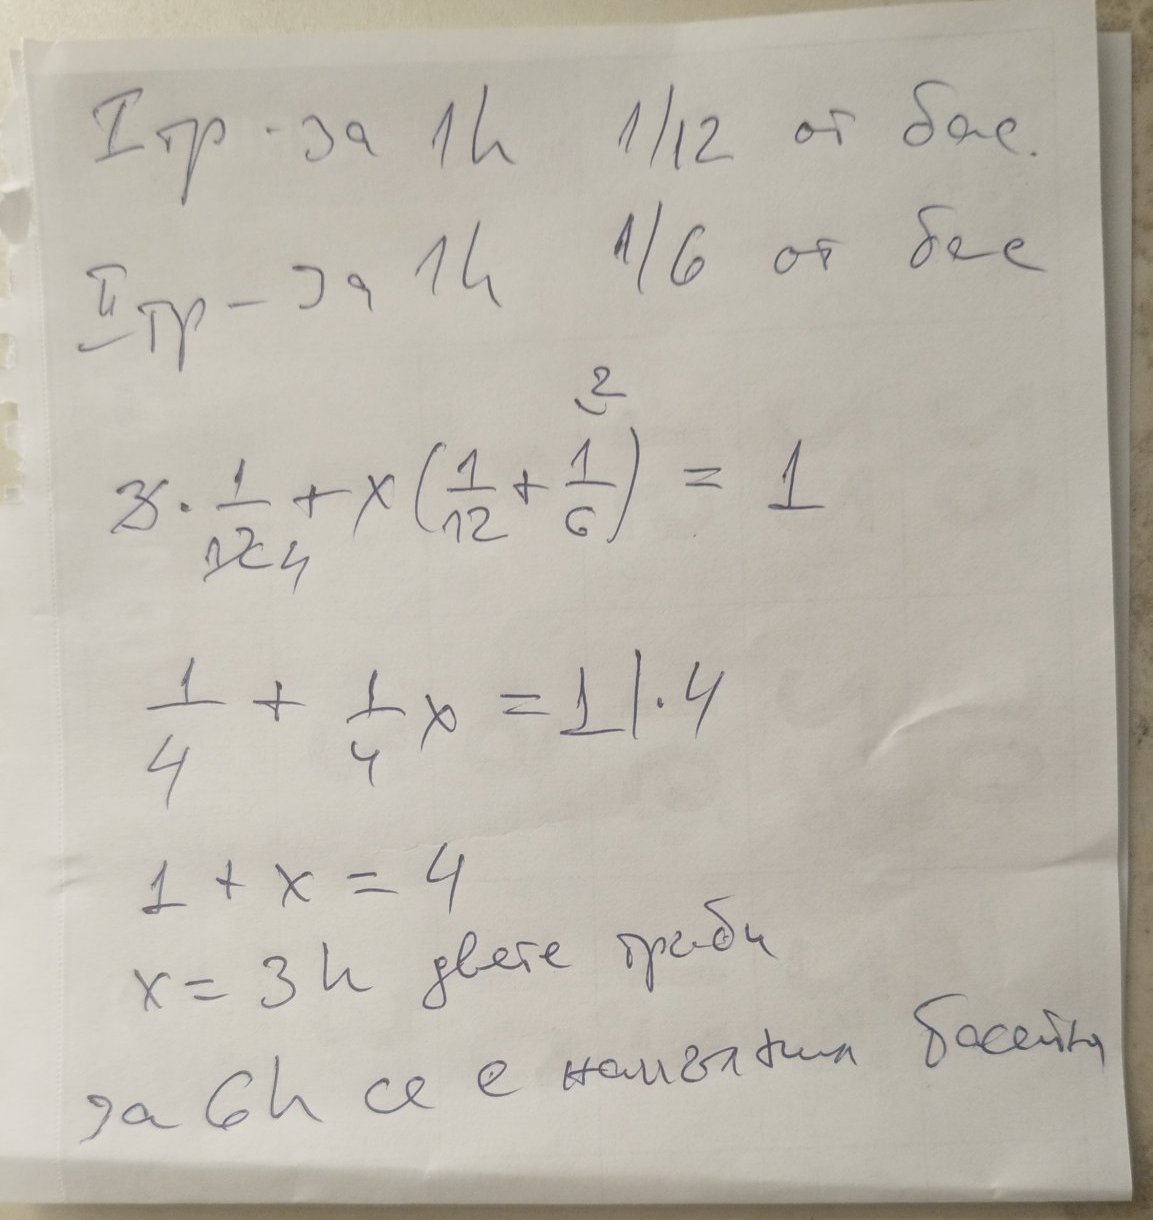 I тр - за 1h 1/12 от бас.
II тр - за 1h 1/6 от бас
3 · 1/12 4 + x (1/12 + 1/6) 2 = 1
1/4 + 1/4 x = 1 | · 4
1 + x = 4
x = 3h двете тръби
за 6h се е напълнил басейна